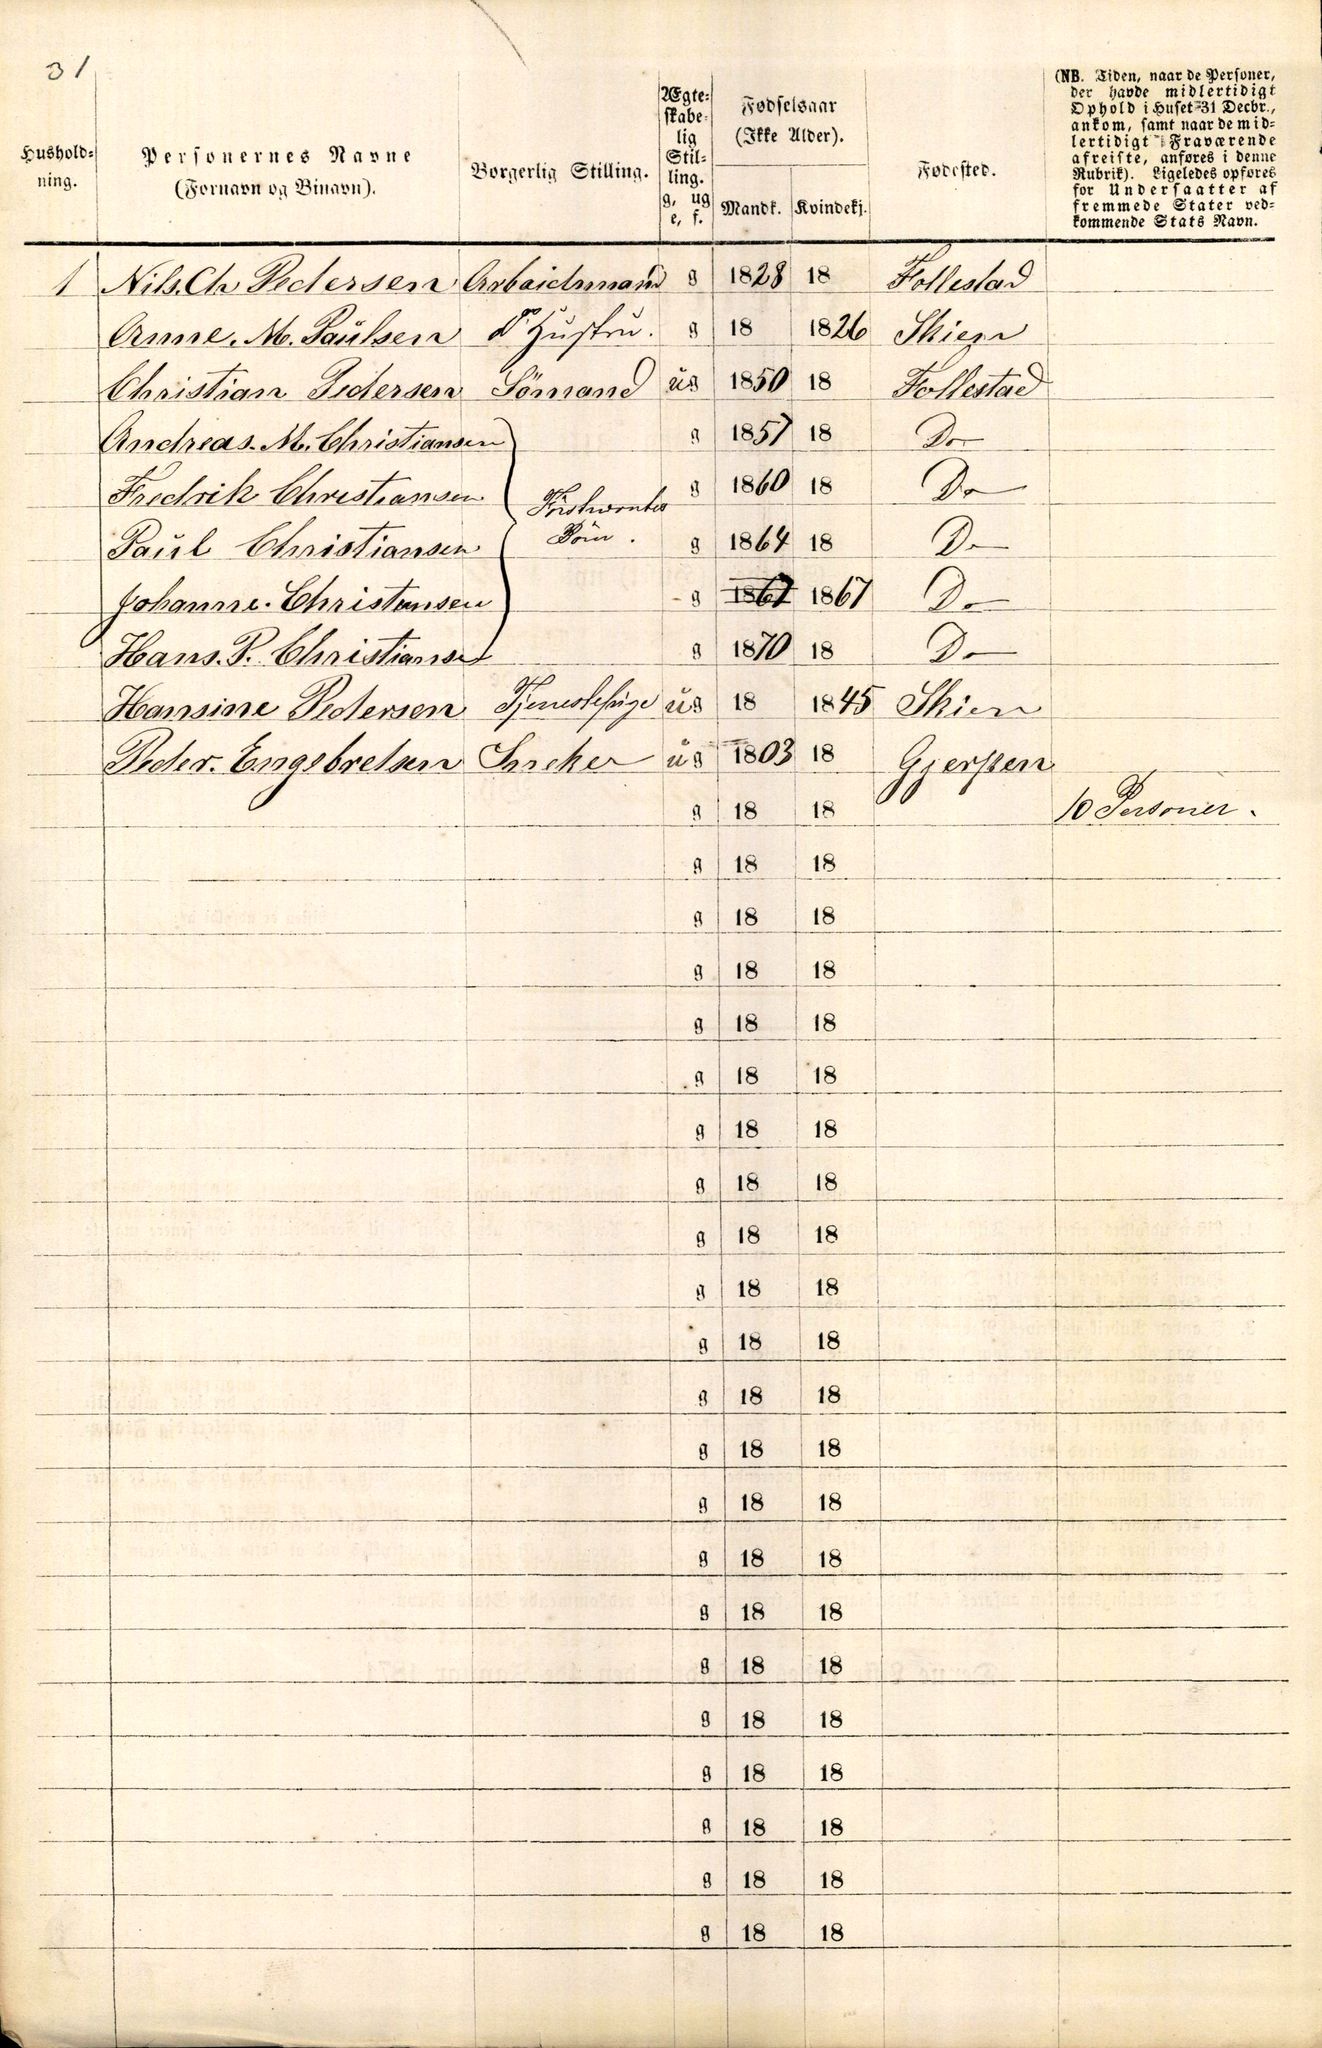 31
Hushold-
ning.
Personernes Navne
(Fornavn og Binavn).
Borgerlig Stilling.
Ægte-
skabe-
lig
Stil-
ling.
g, ug
e, f.
Fødselsaar
(Ikke Alder).
Mandk. Kvindekj.
Fødested.
(NB. Tiden, naar de Personer,
der havde midlertidigt
Ophold i Huset 31 Decbr.,
ankom, samt naar de mid-
lertidigt Fraværende
afreiste, anføres i denne
Rubrik). Ligeledes opføres
for Undersaatter af
fremmede Stater ved-
kommende Stats Navn.
1 Nils. Ch Pedersen Arbaidsmand g 1828 18 Follestad
Anne. M. Paulsen Do Hustru. g 18 1826 Skien
Christian Pedersen Sömand ug 1850 18 Follestad
Andreas. M. Christiansen g 1857 18 Do
Fredrik Christiansen g 1860 18 Do
Paul Christiansen Börn. g 1864 18 Do
Johanne. Christensen g 1867 1867 Do
Hans. P. Christianse g 1870 18 Do
Hansine Pedersen Tjenestepige ug 18 1845 Skien
Peder. Engebretsen Sneker ug 1803 18 Gjerpen
g 18 18 10 Personer.
g 18 18
g 18 18
g 18 18
g 18 18
g 18 18
g 18 18
g 18 18
g 18 18
g 18 18
g 18 18
g 18 18
g 18 18
g 18 18
g 18 18
g 18 18
g 18 18
g 18 18
g 18 18
g 18 18
g 18 18
g 18 18